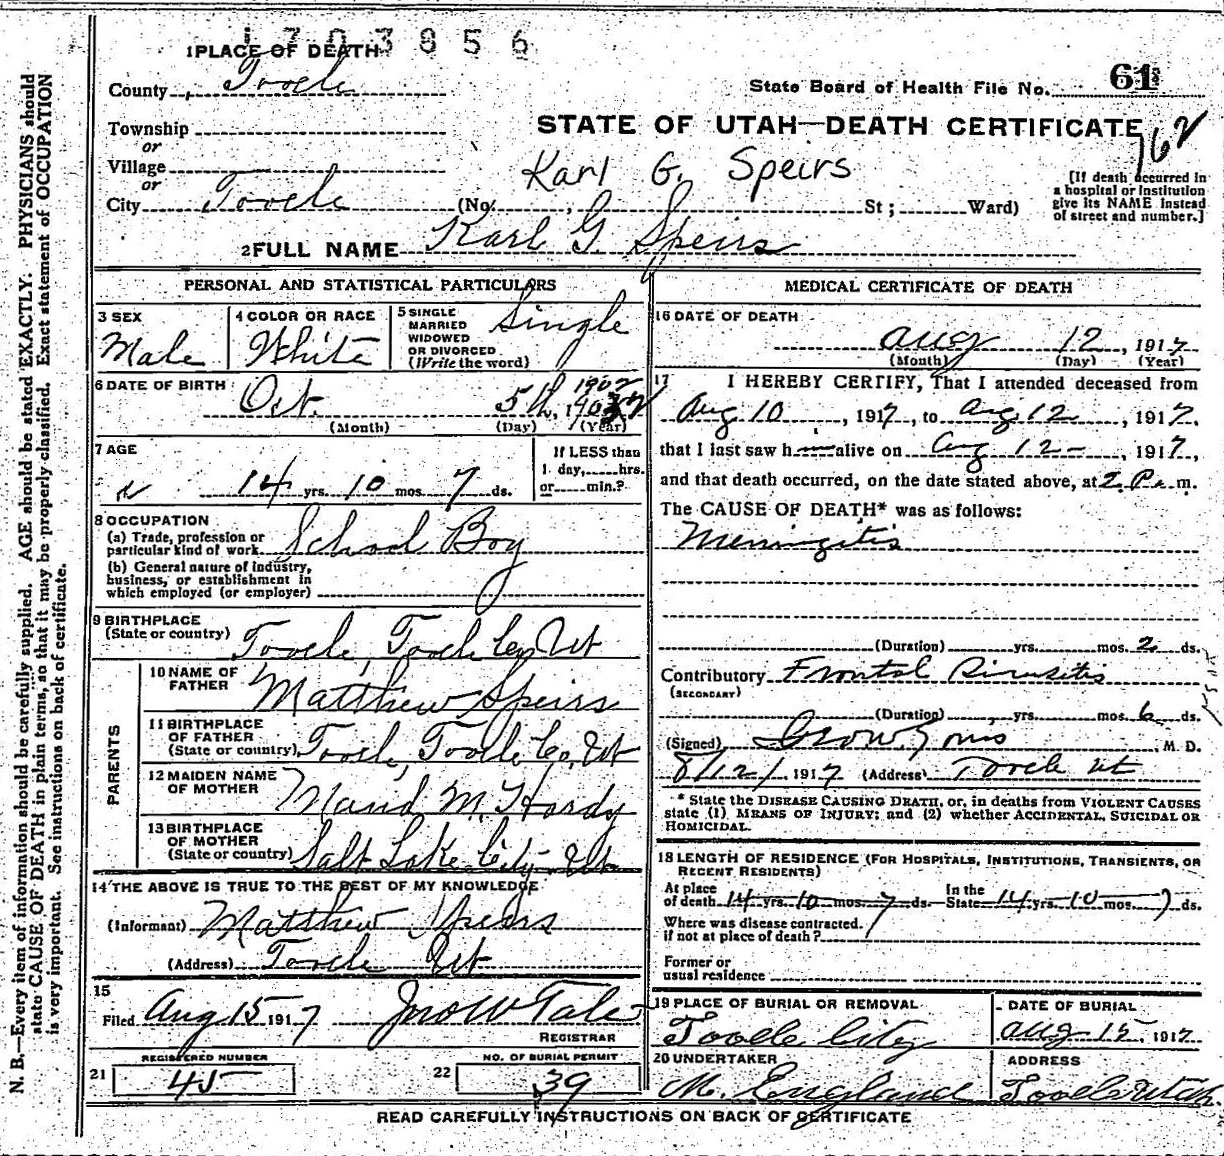 1703856
1 PLACE OF DEATH
County Tooele
State Board of Health File No. 61
Township
or
STATE OF UTAH—DEATH CERTIFICATE
762
Village
or
Karl G. Speirs
City Tooele (No. , St ; Ward)
[If death occurred in
a hospital or institution
give its NAME instead
of street and number.]
2 FULL NAME Karl G Speirs
PERSONAL AND STATISTICAL PARTICULARS
3 SEX
Male
4 COLOR OR RACE
White
5 SINGLE
MARRIED
WIDOWED
OR DIVORCED
(Write the word)
Single
6 DATE OF BIRTH
1902
Oct. 5th, 190
(Month) (Day) (Year)
7 AGE
14 yrs. 10 mos. 7 ds.
If LESS than
1 day, hrs.
or min.?
8 OCCUPATION
(a) Trade, profession or
particular kind of work School Boy
(b) General nature of industry,
business, or establishment in
which employed (or employer)
9 BIRTHPLACE
(State or country) Tooele, Tooele Co, Ut
PARENTS
10 NAME OF
FATHER Matthew Speirs
11 BIRTHPLACE
OF FATHER
(State or country) Tooele, Tooele Co, Ut
12 MAIDEN NAME
OF MOTHER Maud M. Hardy
13 BIRTHPLACE
OF MOTHER
(State or country) Salt Lake City Ut
14 THE ABOVE IS TRUE TO THE BEST OF MY KNOWLEDGE
(Informant) Matthew Speirs
(Address) Tooele Ut
15
Filed Aug 15 1917 Jno W Tate
REGISTRAR
21 REGISTERED NUMBER
45
22 NO. OF BURIAL PERMIT
39
MEDICAL CERTIFICATE OF DEATH
16 DATE OF DEATH
Aug 12, 1917
(Month) (Day) (Year)
17 I HEREBY CERTIFY, That I attended deceased from
Aug 10, 1917, to Aug 12, 1917,
that I last saw h alive on Aug 12, 1917,
and that death occurred, on the date stated above, at 2 P. m.
The CAUSE OF DEATH* was as follows:
Meningitis
(Duration) yrs. mos. 2 ds.
Contributory Frontal Sinusitis
(SECONDARY)
(Duration) yrs. mos. 6 ds.
(Signed) , M. D.
8/12/ 1917 (Address) Tooele Ut
* State the DISEASE CAUSING DEATH, or, in deaths from VIOLENT CAUSES
state (1) MEANS OF INJURY; and (2) whether ACCIDENTAL, SUICIDAL OR
HOMICIDAL.
18 LENGTH OF RESIDENCE (FOR HOSPITALS, INSTITUTIONS, TRANSIENTS, OR
RECENT RESIDENTS)
At place
of death 14 yrs. 10 mos. 7 ds.
In the
State 14 yrs. 10 mos. 7 ds.
Where was disease contracted.
if not at place of death?
Former or
usual residence
19 PLACE OF BURIAL OR REMOVAL
Tooele City
DATE OF BURIAL
Aug 15, 1917
20 UNDERTAKER
M. England
ADDRESS
Tooele Utah.
READ CAREFULLY INSTRUCTIONS ON BACK OF CERTIFICATE
N. B.—Every item of information should be carefully supplied. AGE should be stated EXACTLY. PHYSICIANS should
state CAUSE OF DEATH in plain terms, so that it may be properly classified. Exact statement of OCCUPATION
is very important. See instructions on back of certificate.